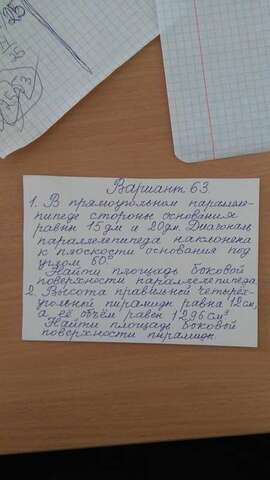 Вариант 63
1. В прямоугольном паралле-
пипеде стороны основания
равны 15 дм и 20 дм. Диагональ
параллелепипеда наклонена
к плоскости основания под
углом 60°.
Найти площадь боковой
поверхности параллелепипеда.
2. Высота правильной четырёх-
угольной пирамиды равна 12 см,
а её объём равен 1296 см³
Найти площадь боковой
поверхности пирамиды.
25